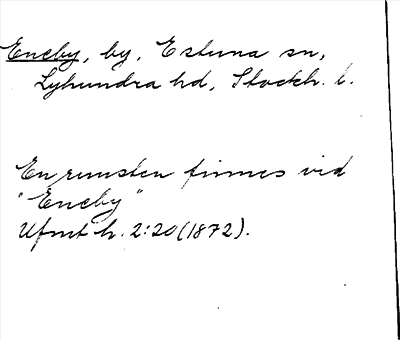 Eneby, by, Estuna sn,
Lyhundra hd, Stockh. l.
En runsten finnes vid
"Eneby"
Ufmt h. 2:20 (1872).